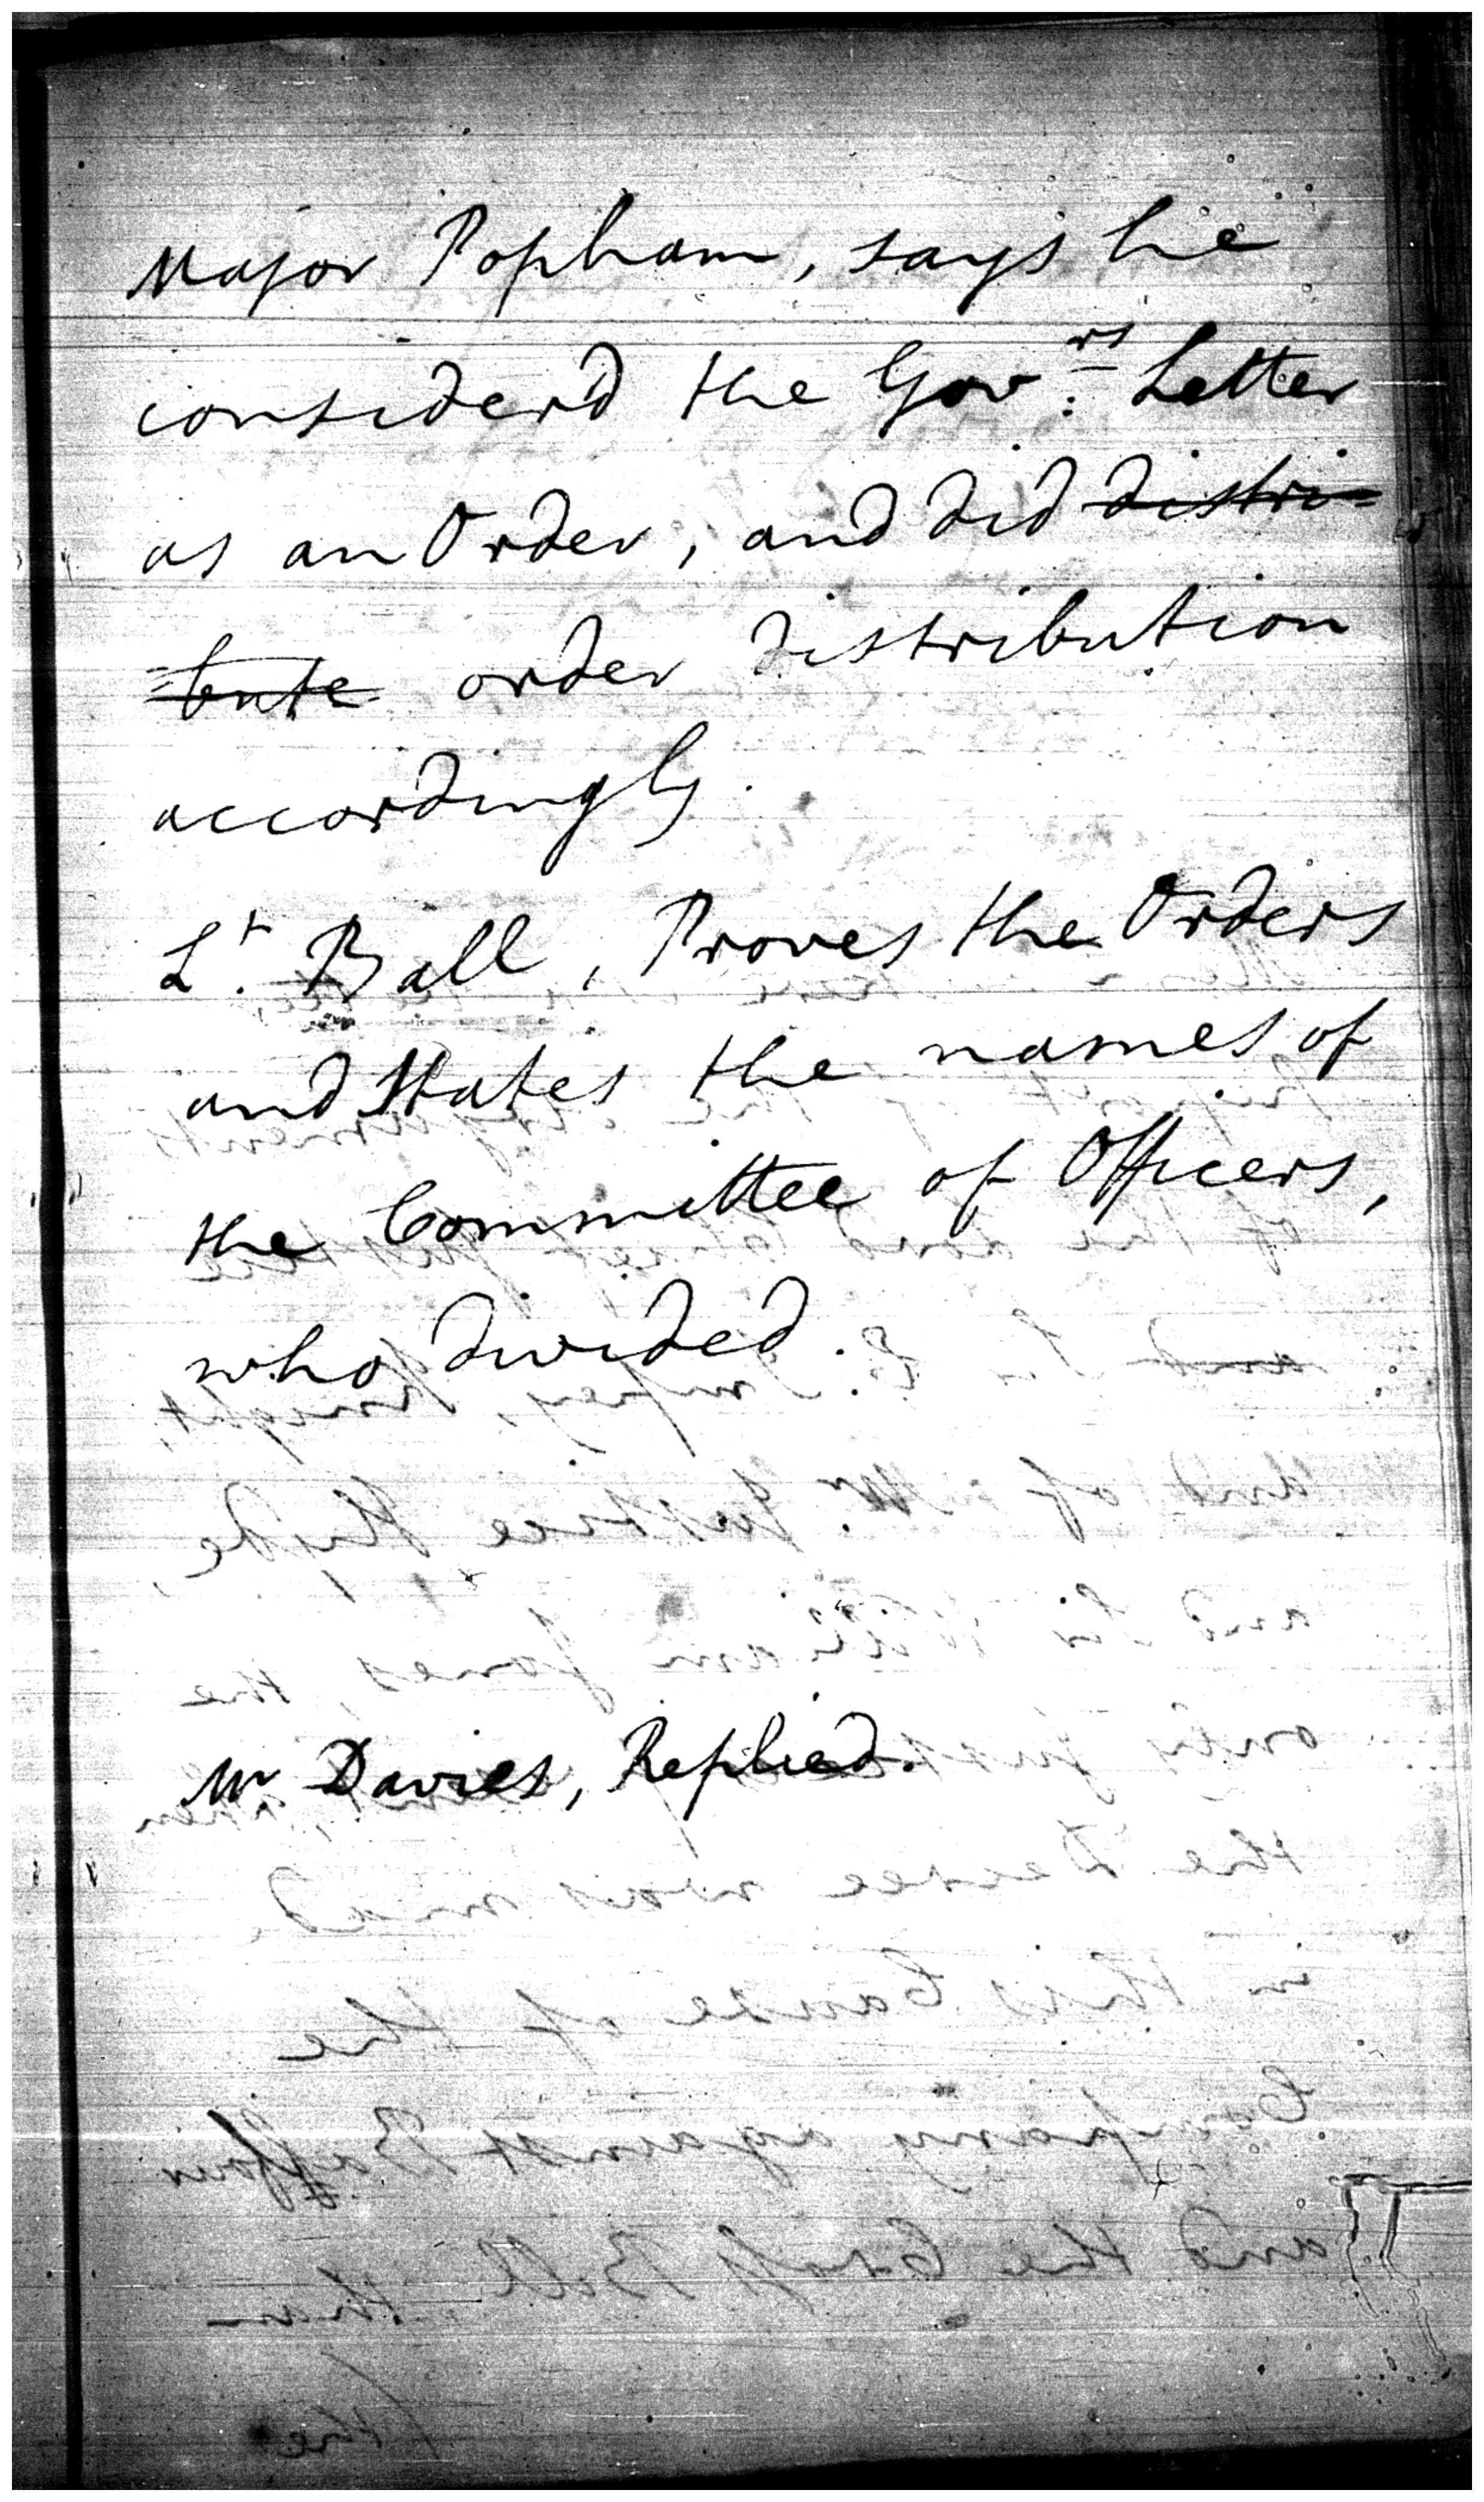 Major Popham, says he
considerd the Gov:rs Letter
as an Order, and did distri=
=bute order distribution
accordingly.
Lt. Ball, Proves the Orders
and States the names of
the Committee of Officers,
who divided.
Mr Davies, Replied.